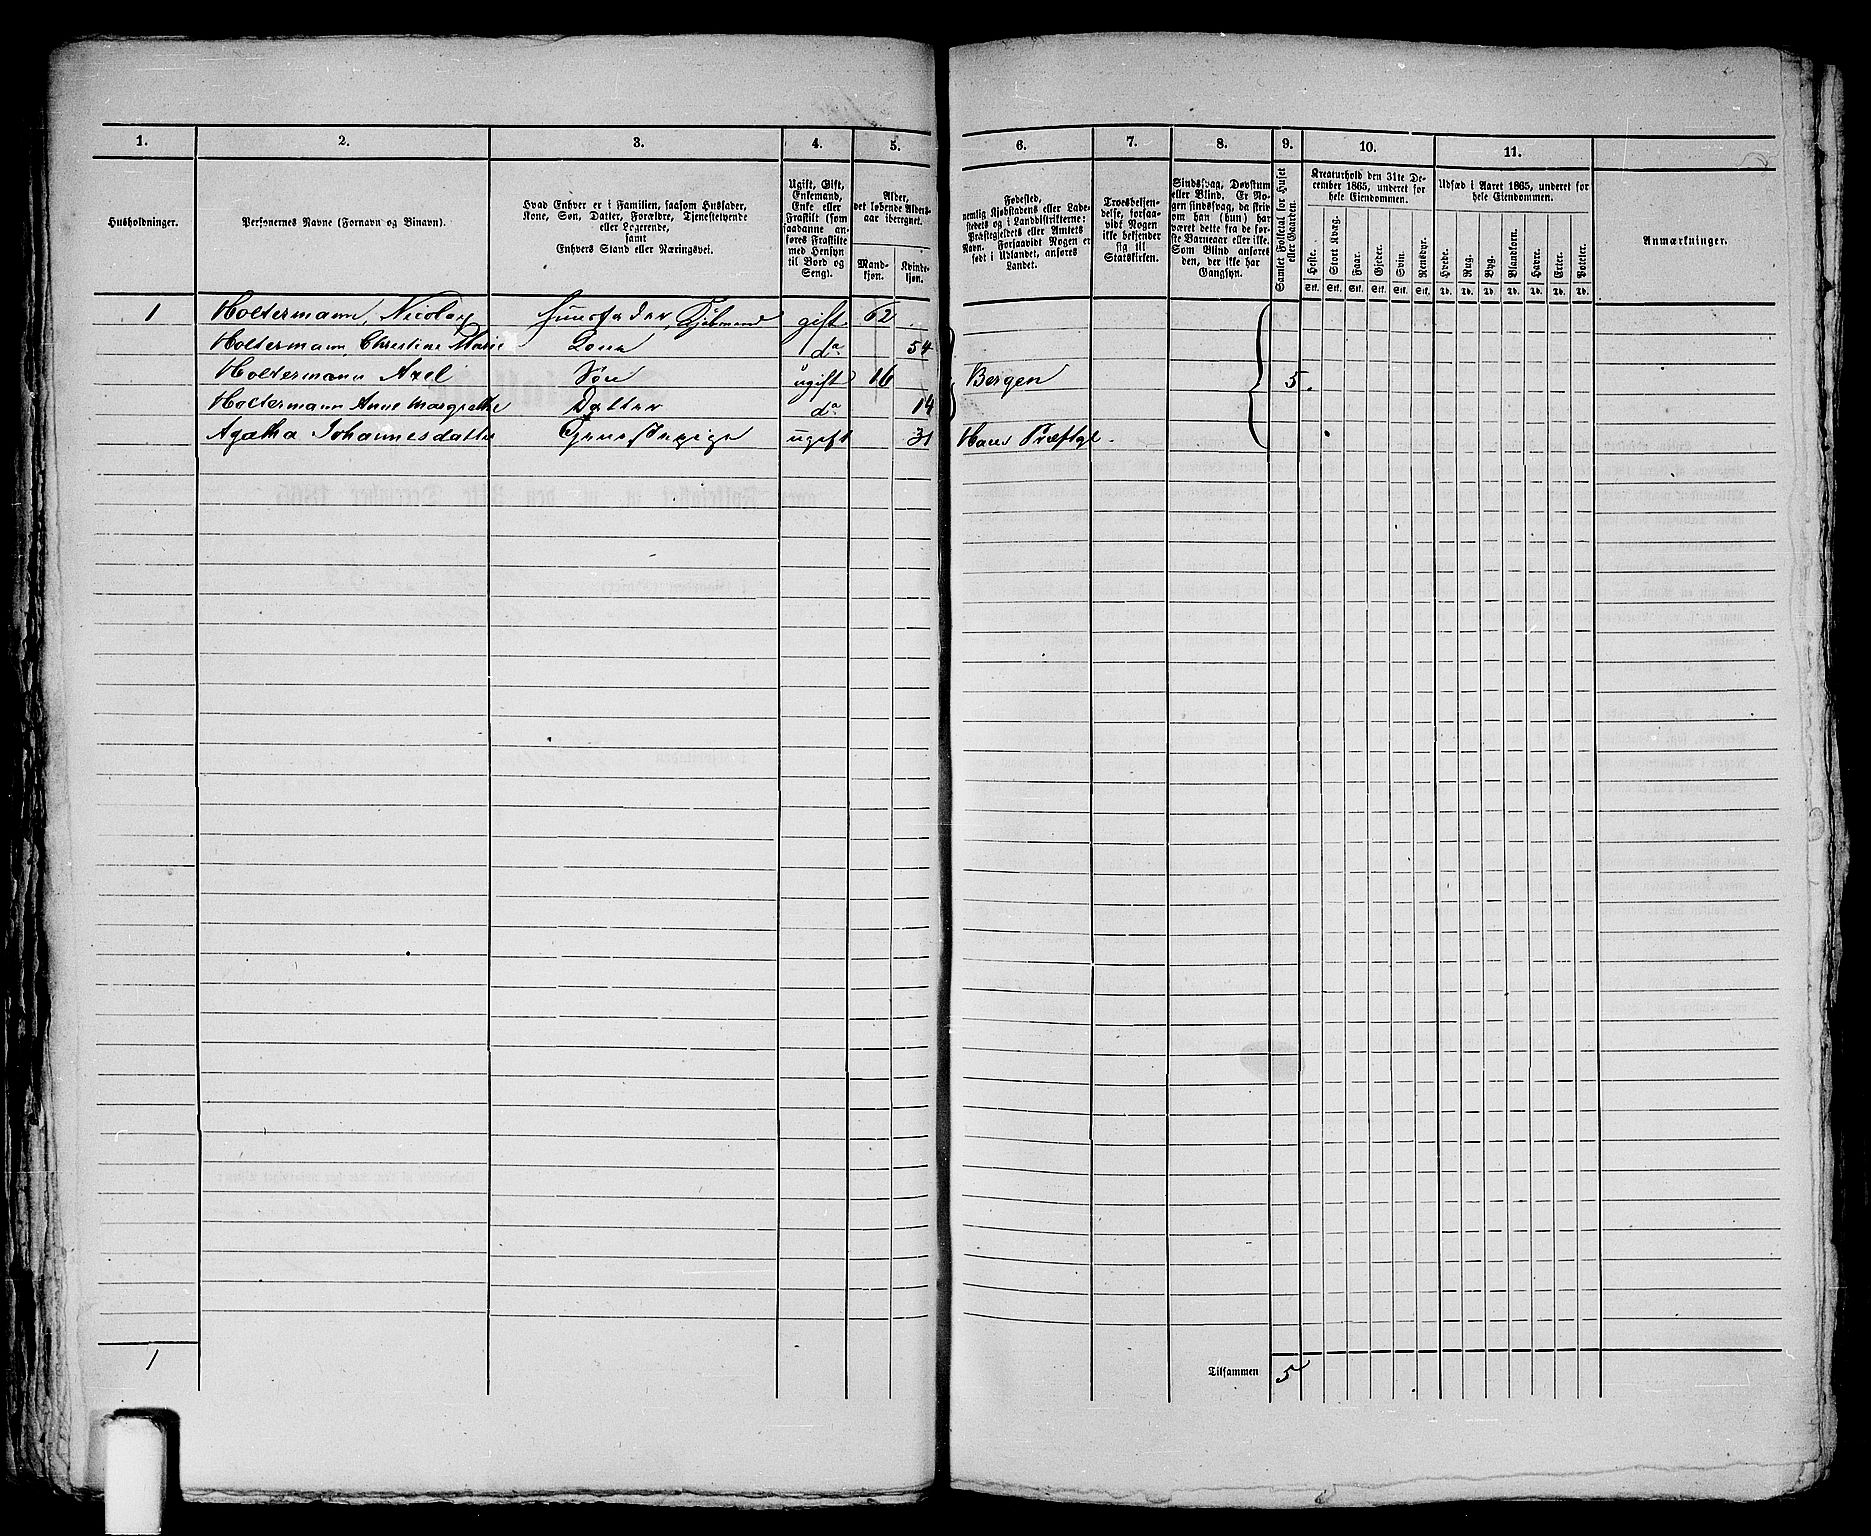 1. 2. 3. 4. 5.
Husholdninger.
Personernes Navne (Fornavn og Binavn).
Hvad Enhver er i Familien, saasom Husfader,
Kone, Søn, Datter, Forældre, Tjenestetyende
eller Logerende,
samt
Enhvers Stand eller Næringsvei.
Ugift, Gift,
Enkemand,
Enke eller
Fraskilt (som
saadanne an-
føres Fraskilte
med Hensyn
til Bord og
Seng).
Alder,
det løbende Alders-
aar iberegnet.
Mand-
kjøn.
Kvinde-
kjøn.
1 Holtermann, Nicolay Huusfader, gift 62
Holtermann, Christine Marie Kone do 54
Holtermann Axel Søn ugift 16
Holtermann Anne Margrethe Datter do 14
Agatha Johannesdatter Tjenestepige ugift 31
1
6. 7. 8. 9. 10. 11.
Fødested,
nemlig Kjøbstadens eller Lade-
stedets og i Landdistrikterne:
Præstegjeldets eller Amtets
Navn. Forsaavidt Nogen er
født i Udlandet, anføres
Landet.
Troesbekjen-
delse, forsaa-
vidt Nogen
ikke bekjender
sig til
Statskirken.
Sindssvag, Døvstum
eller Blind. Er No-
gen sindssvag, da skriv
om han (hun) har
været dette fra de før-
ste Barneaar eller ikke.
Som Blind ansøres
den, der ikke har
Gangsyn.
Samlet Folketal for Huset
eller Gaarden.
Kreaturhold den 31te De-
cember 1865, underet for
hele Eiendommen.
Heste. Stort Kvæg. Faar. Gjeder. Svin. Rensdyr.
Stk. Stk. Stk. Stk. Stk. Stk.
Udsæd i Aaret 1865, underet for
hele Eiendommen.
Hvede. Rug. Byg. Blandkorn. Havre. Erter. Poteter.
Td. Td. Td. Td. Td. Td. Td.
Anmærkninger.
Bergen 5.
Haus Præstgl.
Tilsammen 5